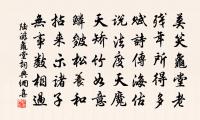 莫笑龜堂老
殘年所得多
賦詩傳海估
說法度天魔
夭矯竹如意
鱗皴松養和
拈來示諸子
無事數相過
陸游龜堂詞典網集